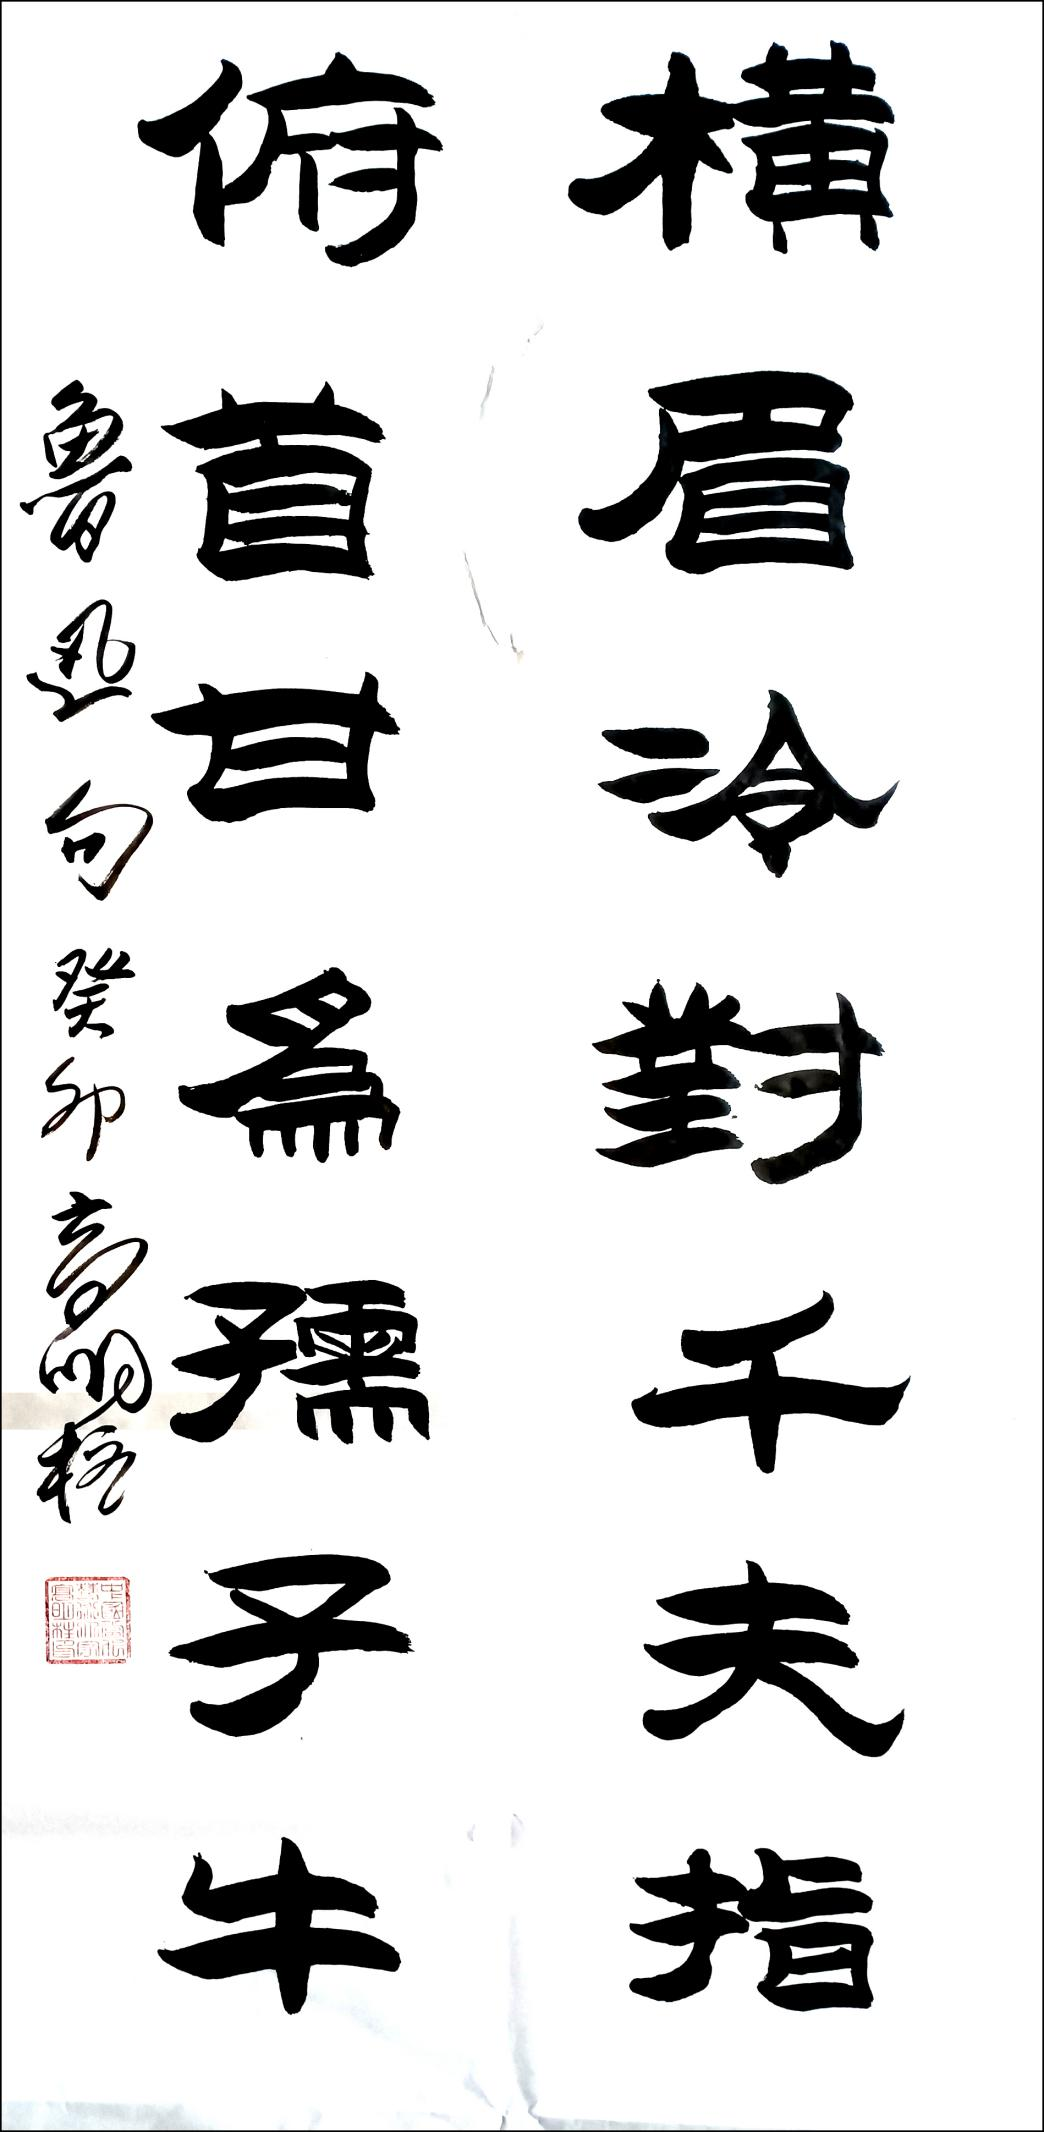 橫眉冷對千夫指
俯首甘為孺子牛
魯迅句癸卯高明柱